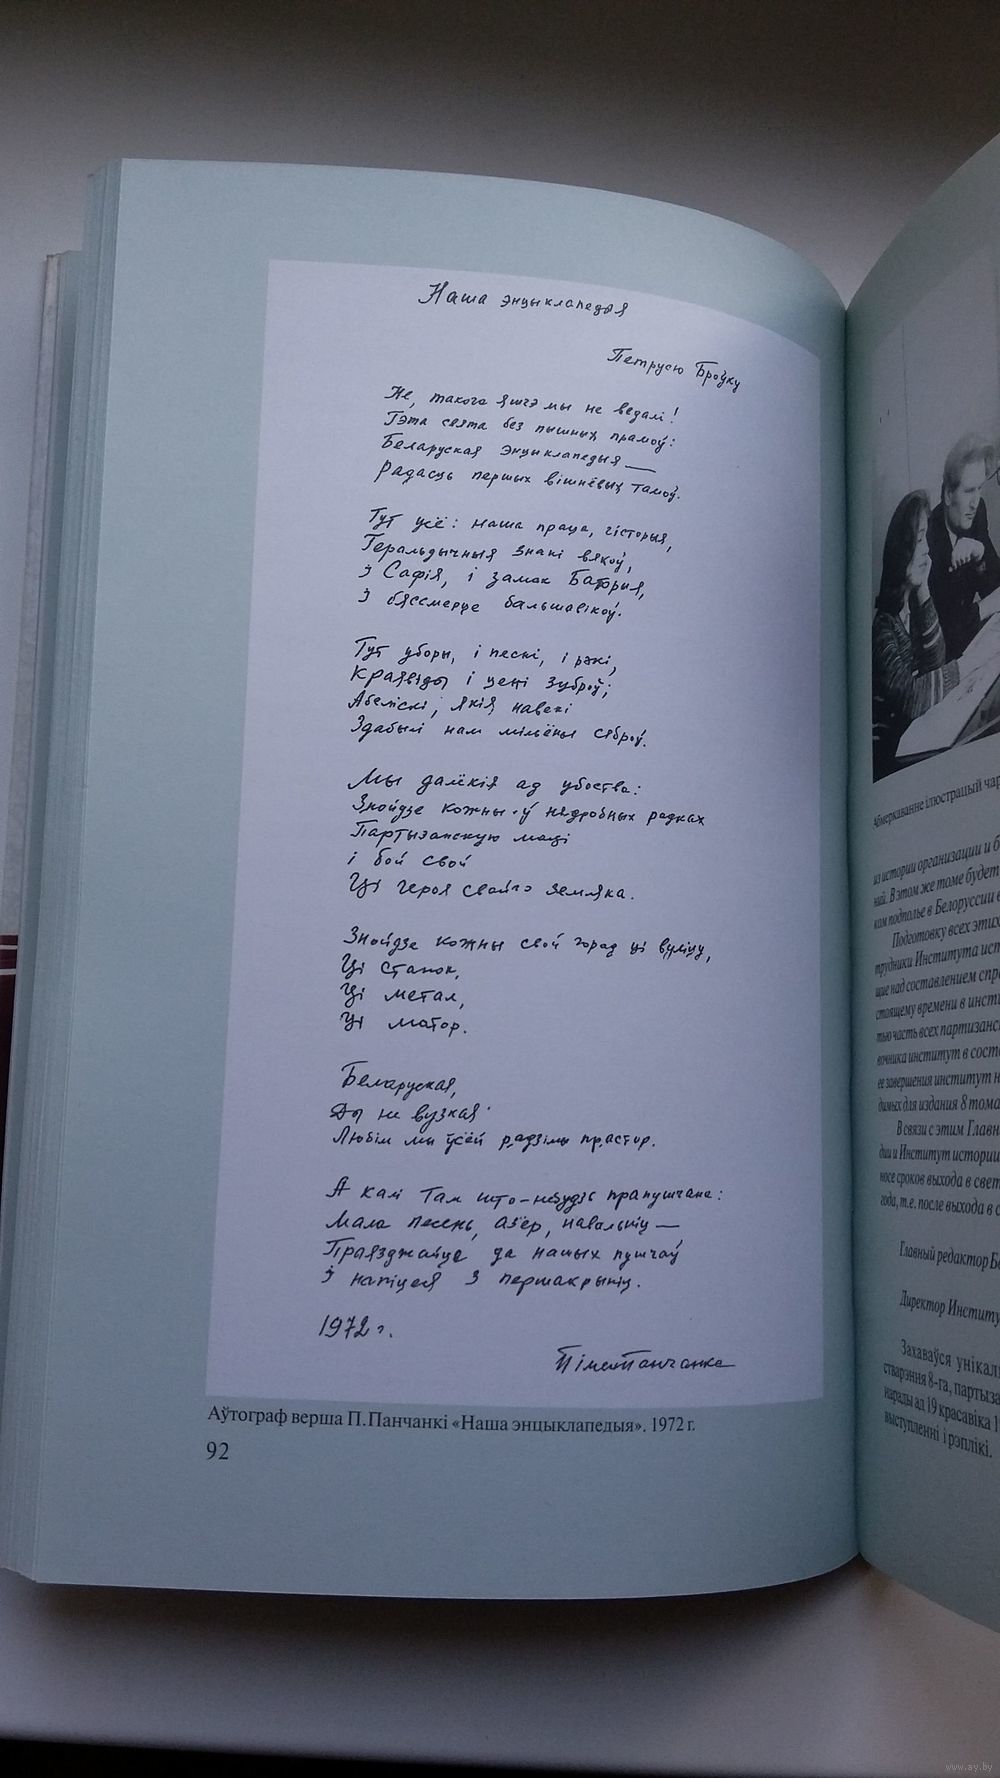 Наша энцыклапедыя
Петрусю Броўку
Не, такога яшчэ мы не ведалі!
Гэта свята без пышных прамоў:
Беларуская Энцыклапедыя —
Радасць першых вішнёвых тамоў.
Тут усё: наша праца, гісторыя,
Геральдычныя знакі вякоў,
І Сафія, і замак Баторыя,
І бяссмерце бальшавікоў.
Тут уборы, і песні, і рэкі,
Краявіды і цені зуброў;
Абеліскі, якія навекі
Здабылі нам мільёны сяброў.
Мы далёкія ад убоства:
Знойдзе кожны ў нядробных радках
Партызанскую маці
і бой свой
Ці героя свайго земляка.
Знойдзе кожны свой горад ці вуліцу,
Ці станок,
Ці метал,
Ці матор.
Беларуская,
Ды не вузкая
Любім мы ўсёй радзімы прастор.
А калі там што-небудзь прапушчана:
Мала песень, азёр, навальніц —
Праязджайце да нашых пушчаў
І напіцеся з першакрыніц.
1972 г.
Пімен Панчанка
Аўтограф верша П.Панчанкі «Наша энцыклапедыя». 1972 г.
92
Абмеркаванне ілюстрацый
из истории организации и
ний. В этом же томе будет
ком подполье в Белоруссии
Подготовку всех этих
трудники Института
щие над составлением
стоящему времени в
тью часть всех
вочника институт в
ее завершения институт
димых для издания 8 тома
В связи с этим
дии и Институт истории
носе сроков выхода в
года, т.е. после выхода в
Главный редактор
Директор
Захаваўся
стварэння 8-га,
нарады ад 19 красавіка
выступленні і рэплікі.
www.ay.by